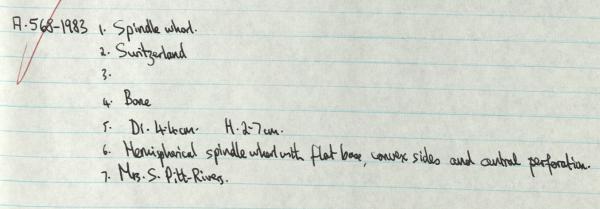 A.568-1983 1. Spindle whorl.
2. Switzerland
3.
4. Bone
5. Di. 4.4cm. H. 2.7cm.
6. Hemispherical spindle whorl with flat base, convex sides and central perforation.
7. Mrs. S. Pitt-Rivers.